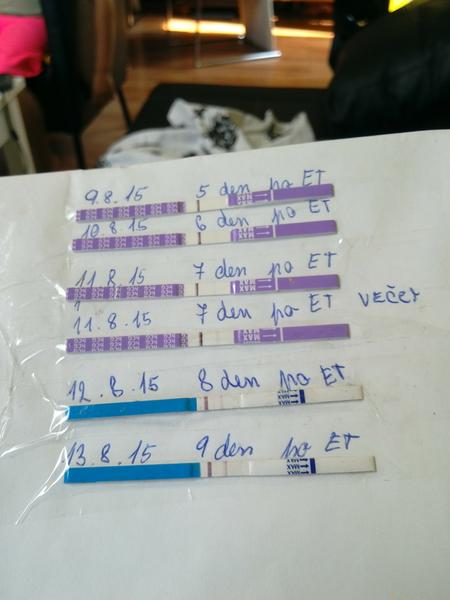 9.8.15 5 den po ET
10.8.15 6 den po ET
11.8.15 7 den po ET
11.8.15 7 den po ET VEČER
12.8.15 8 den po ET
MAX
13.8.15 9 den po ET
MAX